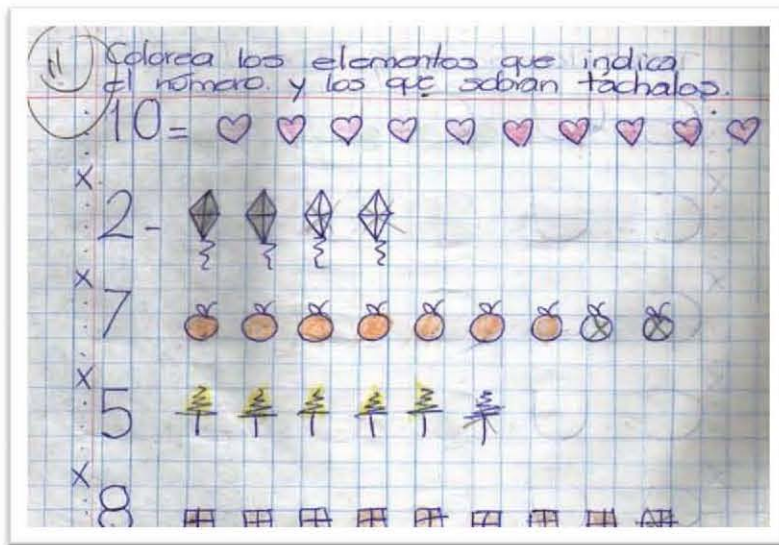 Colorea los elementos que indica
el número. y los que sobran táchalos.
10=
2-
7
5
8